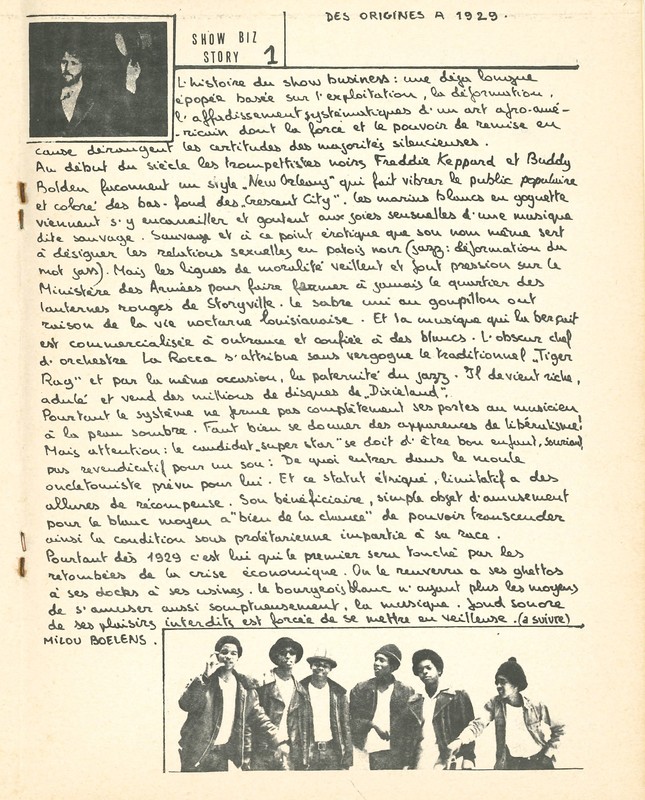 DES ORIGINES A 1929.
SHOW BIZ
STORY 1
L'histoire du show business : une déja longue
épopée basée sur l'exploitation, la déformation,
l'affadissement systématiques d'un art afro-amé-
-ricain dont la force et le pouvoir de remise en
cause dérangent les certitudes des majorités silencieuses.
Au début du siècle les trompettistes noirs Freddie Keppard et Buddy
Bolden faconnent un style „New Orleans" qui fait vibrer le public populaire
et coloré des bas-fond des „Crescent City". Les marins blancs en goguette
viennent s'y encanailler et goutent aux joies sensuelles d'une musique
dite sauvage. Sauvage et à ce point érotique que son nom même sert
à désigner les relations sexuelles en patois noir (jazz : déformation du
mot jass). Mais les ligues de moralité veillent et font pression sur le
Ministère des Armées pour faire fermer à jamais le quartier des
lanternes rouges de Storyville. Le sabre uni au goupillon ont
raison de la vie nocturne louisianaise. Et la musique qui la berçait
est commercialisée à outrance et confiée à des blancs. L'obscur chef
d'orchestre La Rocca s'attribue sans vergogne le traditionnel „Tiger
Rag" et par la même occasion, la paternité du jazz. Il devient riche,
adulé et vend des millions de disques de „Dixieland".
Pourtant le système ne ferme pas complètement ses portes au musicien
à la peau sombre. Faut bien se donner des apparences de libéralisme!
Mais attention : le candidat „super star" se doit d'être bon enfant, souriant,
pas revendicatif pour un sou : De quoi entrer dans le moule
oncletomiste prévu pour lui. Et ce statut étriqué, limitatif a des
allures de récompense. Son bénéficiaire, simple objet d'amusement
pour le blanc moyen a "bien de la chance" de pouvoir transcender
ainsi la condition sous prolétarienne impartie à sa race.
Pourtant dès 1929 c'est lui qui le premier sera touché par les
retombées de la crise économique. On le renverra à ses ghettos
à ses docks à ses usines. Le bourgeois blanc n'ayant plus les moyens
de s'amuser aussi somptueusement, la musique, fond sonore
de ses plaisirs interdits est forcée de se mettre en veilleuse. (à suivre)
MILOU BOELENS.